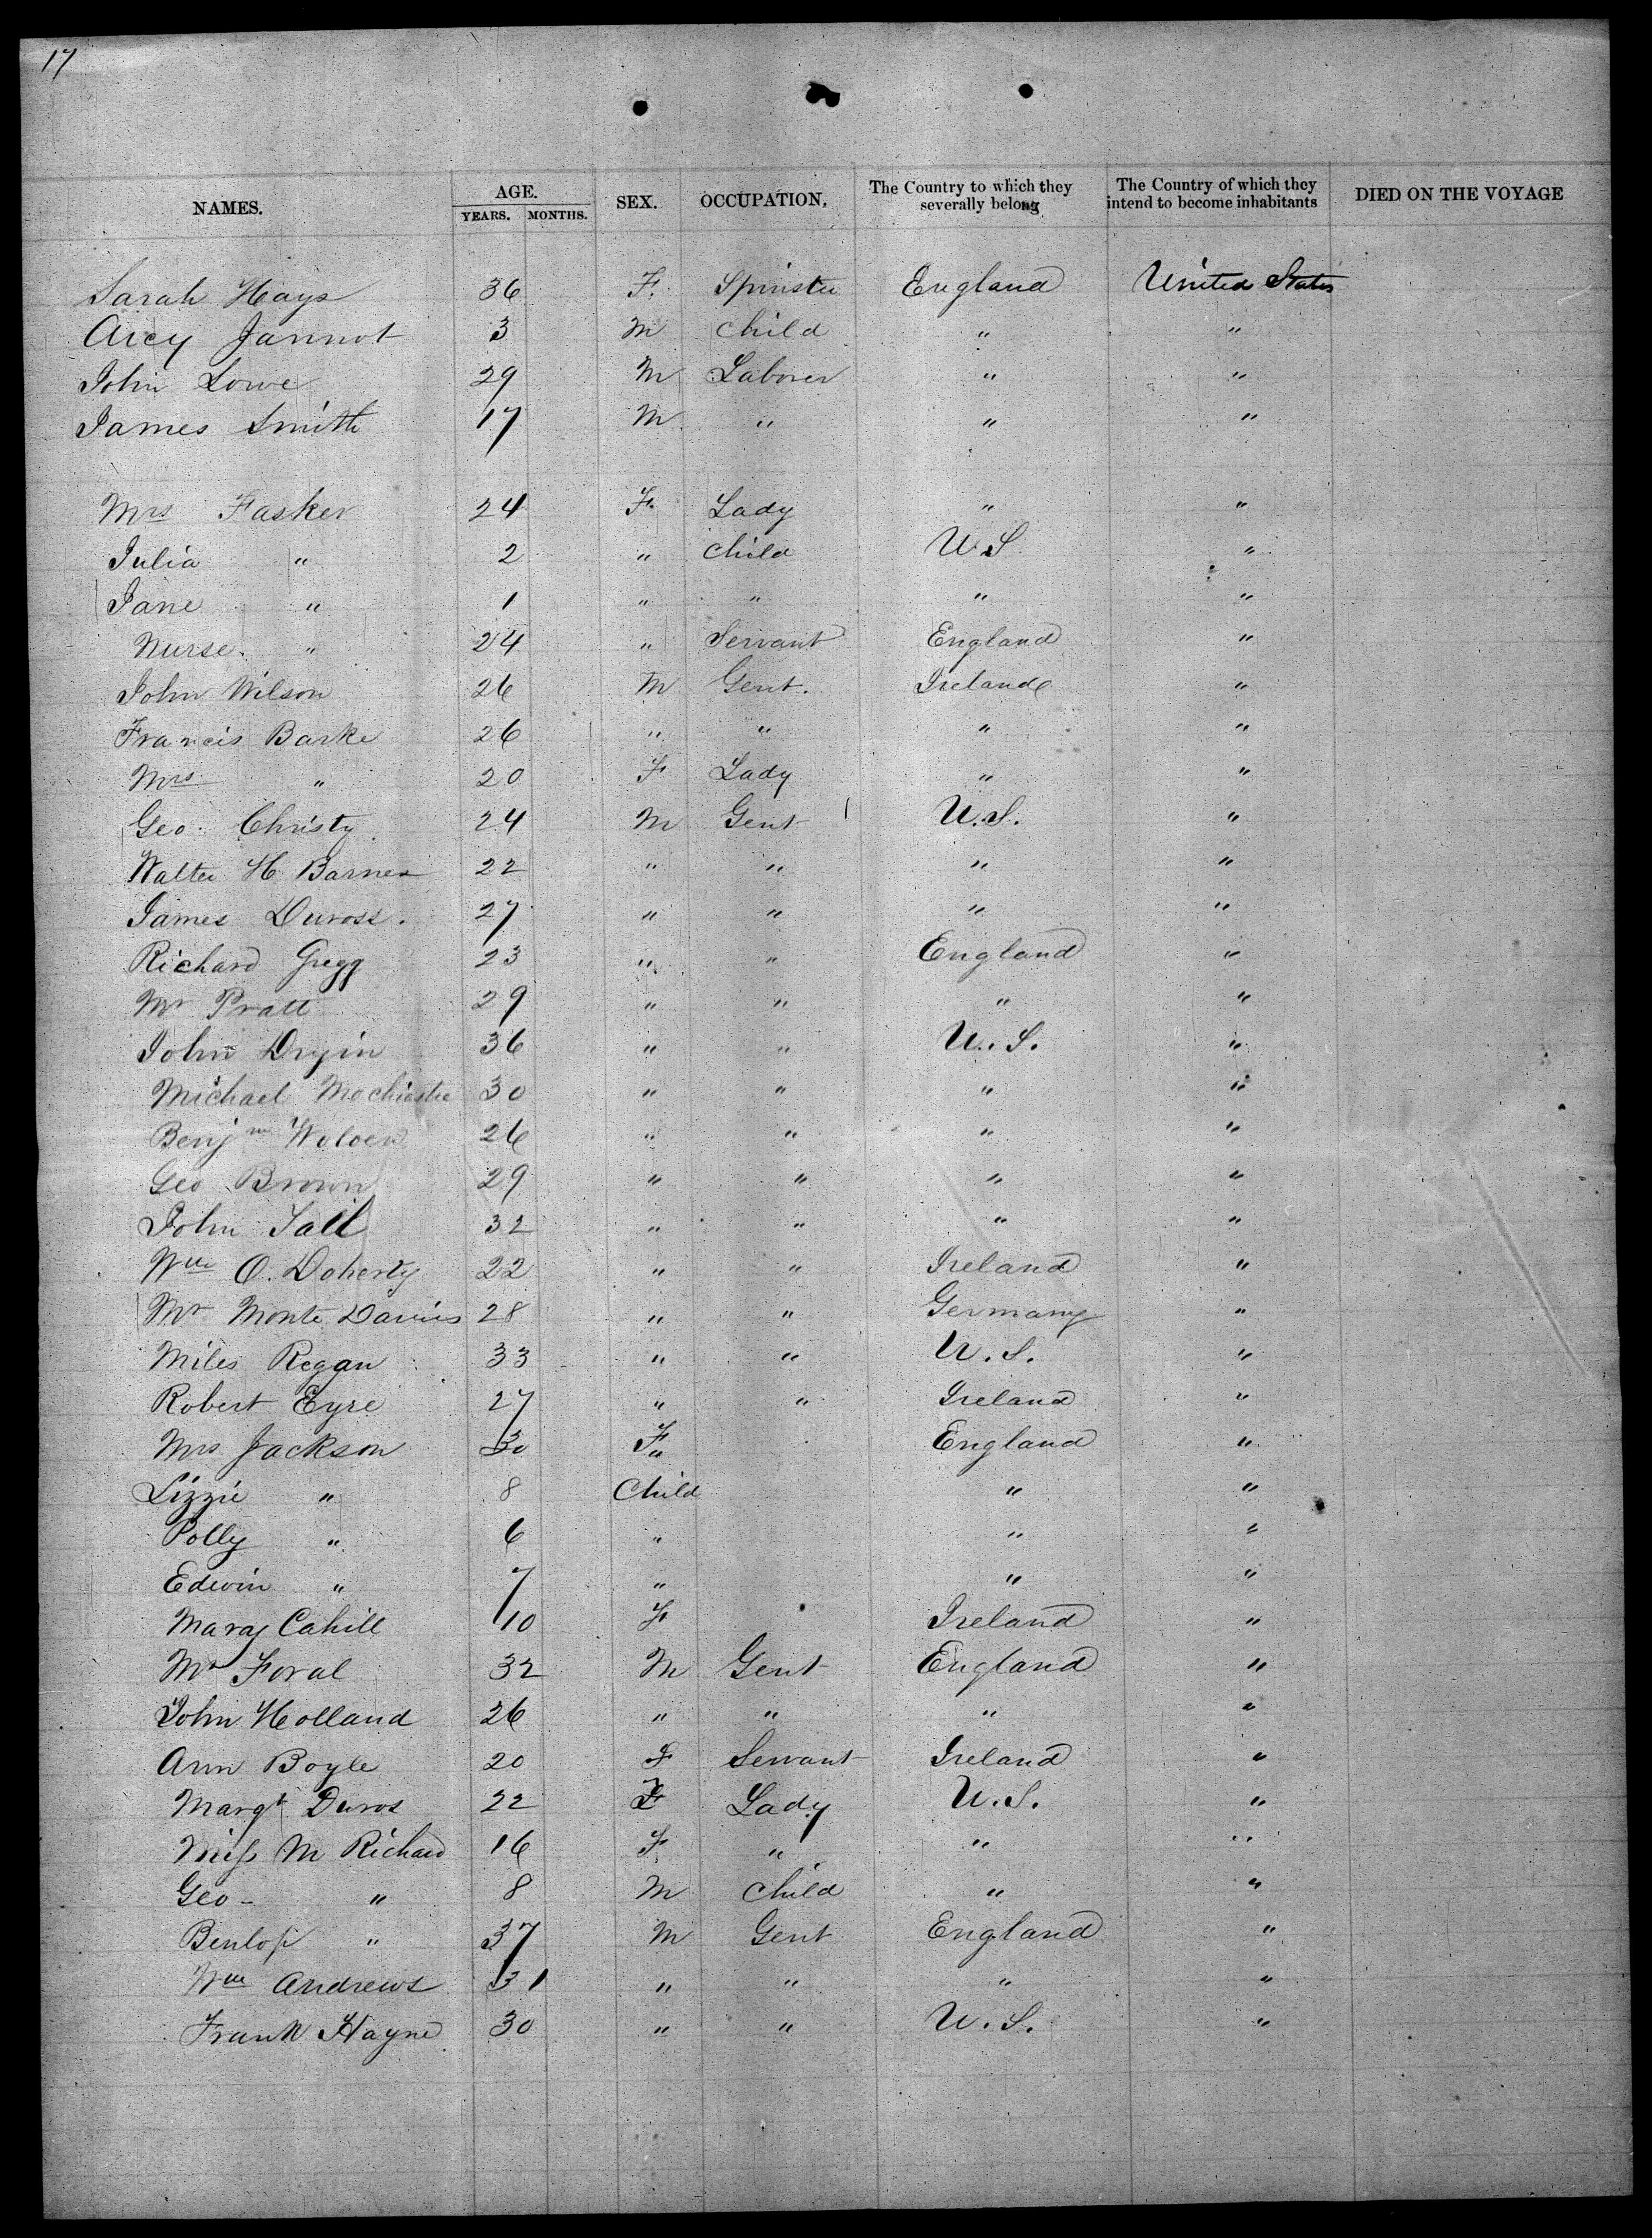 17
NAMES. AGE. YEARS. MONTHS. SEX. OCCUPATION, The Country to which they severally belong The Country of which they intend to become inhabitants DIED ON THE VOYAGE
Sarah Hays 36 F. Spinster England United States
Arcy Jannot 3 M Child " "
John Lowe 29 M Laborer " "
James Smith 17 M " " "
Mrs Fasker 24 F. Lady " "
Julia " 2 " Child U.S "
Jane " 1 " " " "
Nurse " 24 " Servant England "
John Wilson 26 M Gent. Ireland "
Francis Barke 26 " " " "
Mrs " 20 F Lady " "
Geo. Christy 24 M Gent U.S. "
Walter H Barnes 22 " " " "
James Duross. 27 " " " "
Richard Gregg 23 " " England "
Mr Pratt 29 " " " "
John 36 " " U.S. "
Michael 30 " " " "
Benjm 26 " " " "
Geo Brown 29 " " " "
John Tall 32 " " " "
Wm O. Doherty 22 " " Ireland "
Mr Monte Darius 28 " " Germany "
Miles Regan 33 " " U.S. "
Robert Eyre 27 " " Ireland "
Mrs Jackson 30 F " England "
Lizzie " 8 Child " "
Polly " 6 " " "
Edwin " 7 " " "
Mary Cahill 10 F Ireland "
Mr Foral 32 M Gent England "
John Holland 26 " " " "
Ann Boyle 20 F Servant Ireland "
Margt Duros 22 F Lady U.S. "
Miss M Richard 16 F " " "
Geo - " 8 M Child " "
" 37 M Gent England "
Wm Andrews 31 " " " "
Frank Hayne 30 " " U.S. "